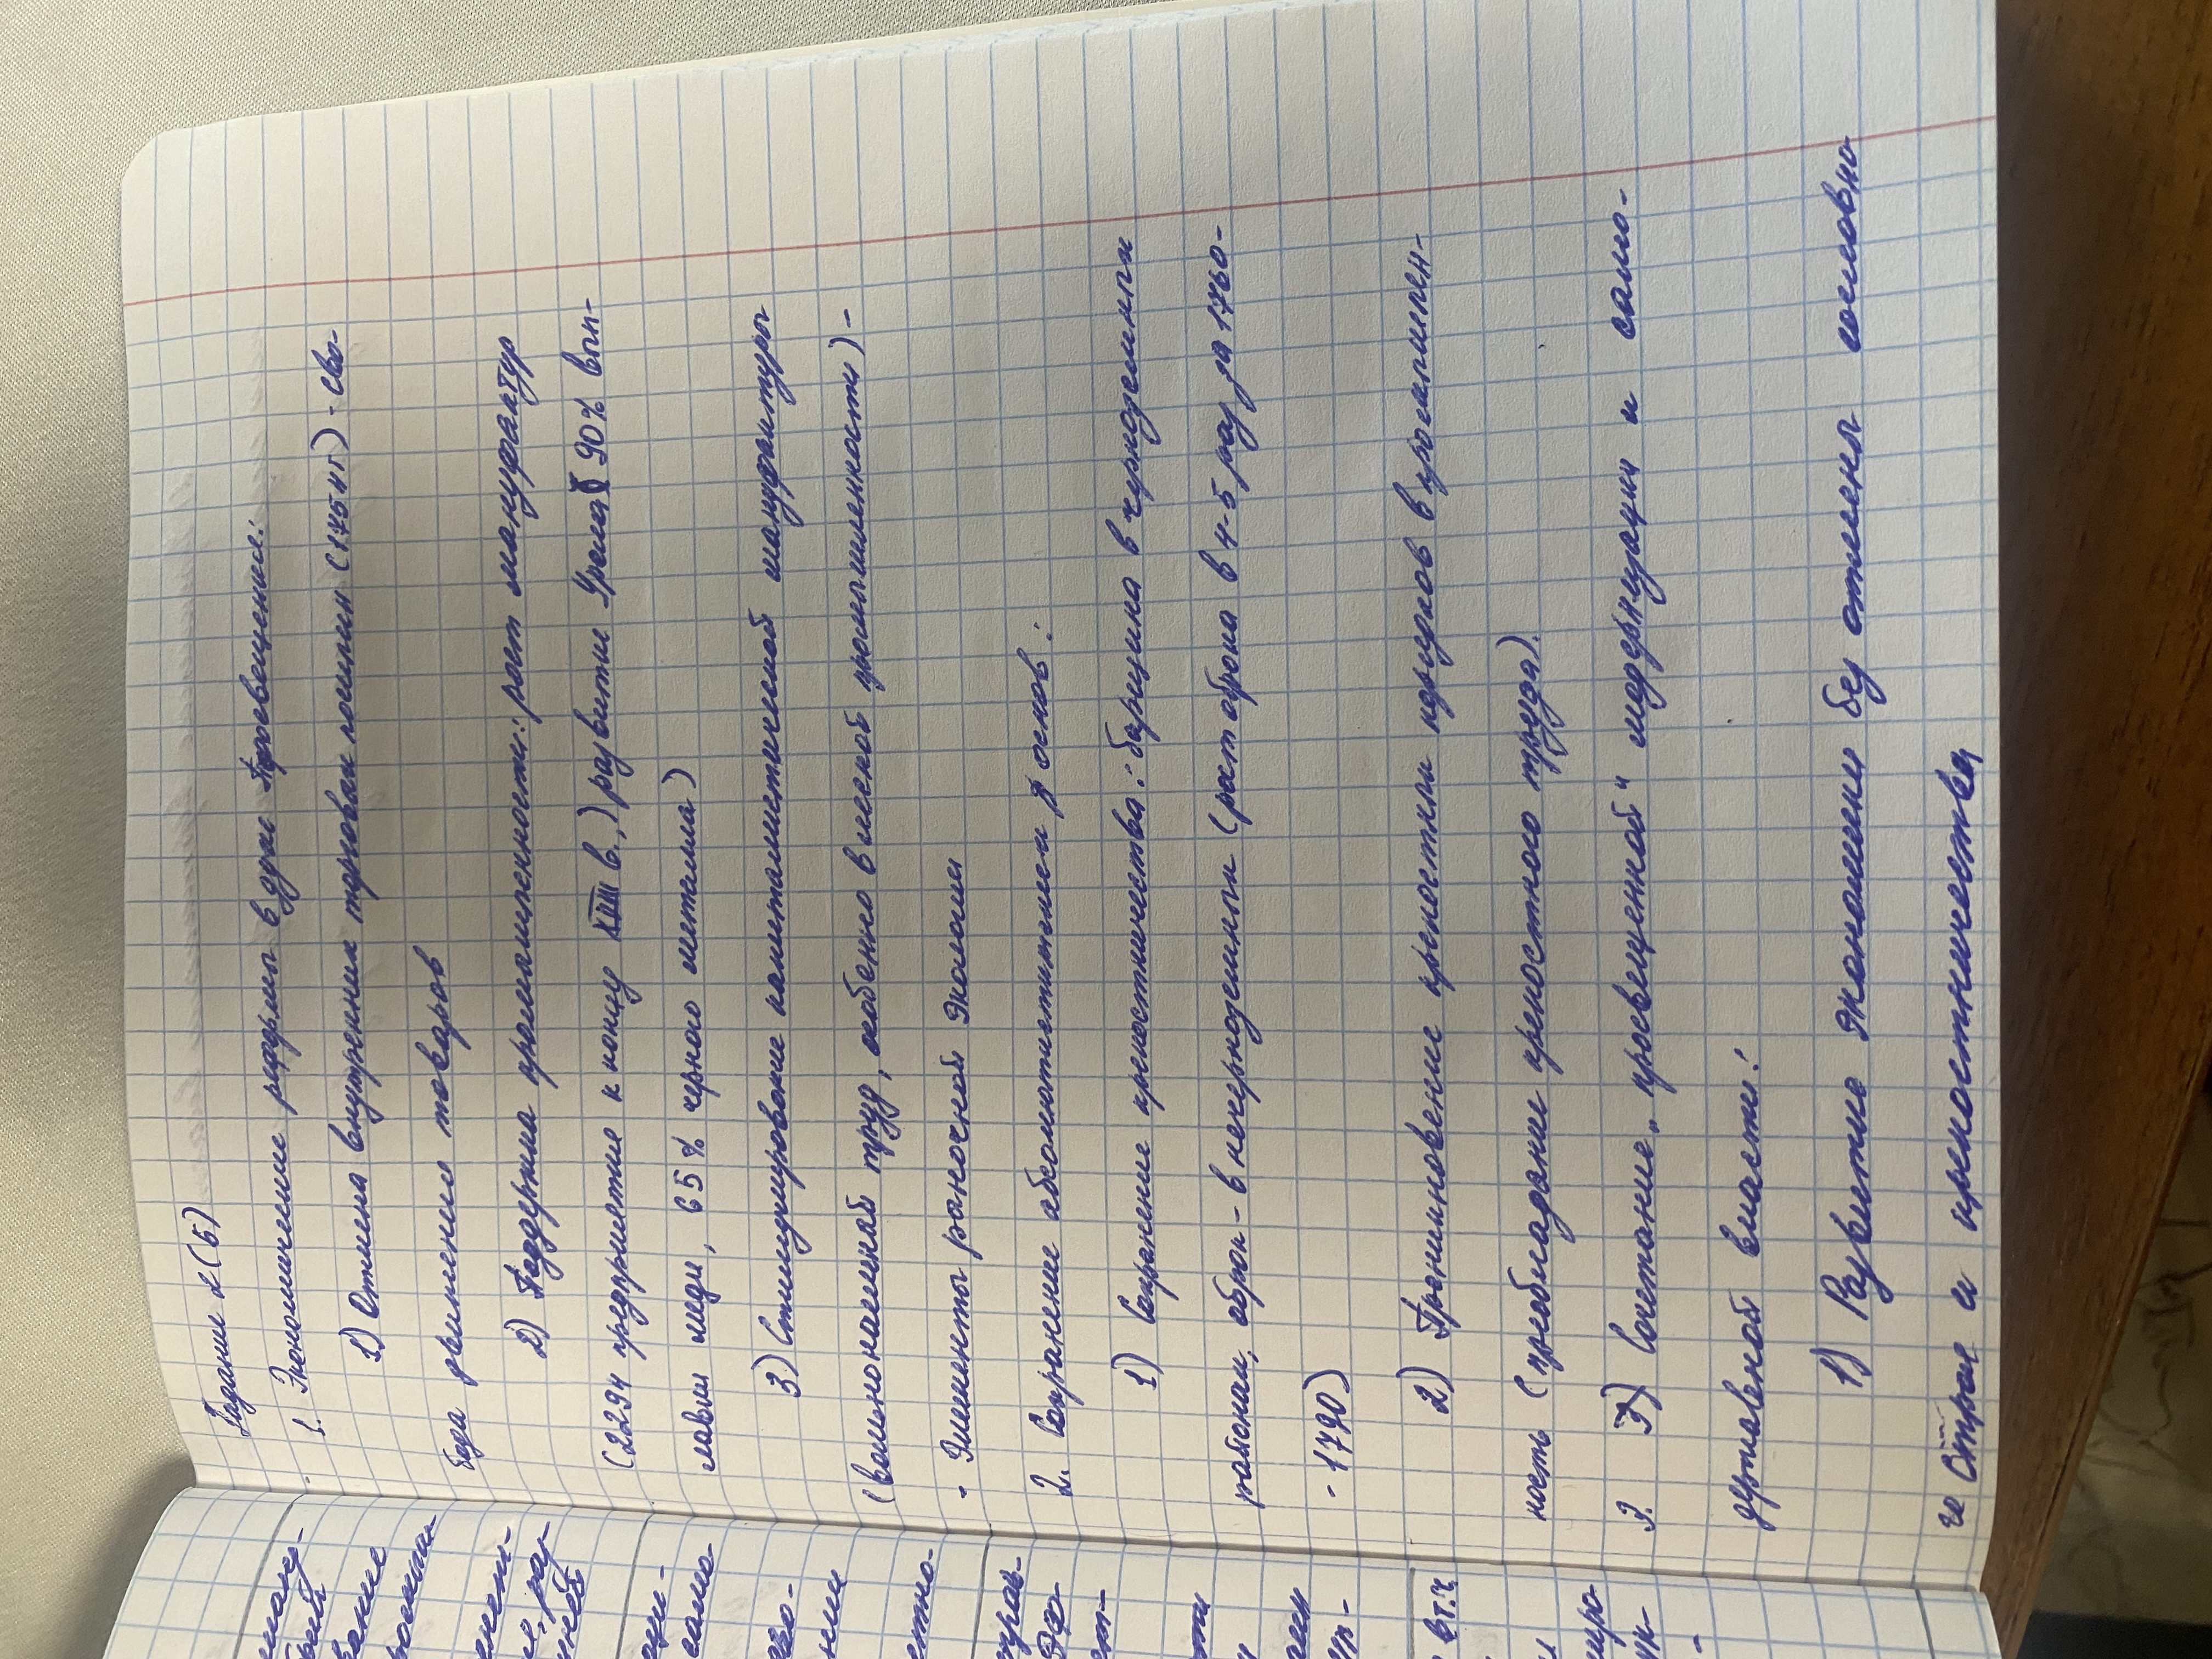 Задание 2(5)
1. Экономические реформы в духе Просвещения:
1) Отмена внутренних торговых пошлин (1754г) - сво-
бода движения товаров
2) Поддержка промышленности: рост мануфактур
(2294 предприятие к концу XVIII в.,) развитие Урала 90% вып-
лавки меди, 65% черного металла)
3) Стимулирование капиталистической мануфактуры
(вольнонаемный труд, особенно в легкой промышленности) -
- Элементы рыночной экономии
2. Сохранение абсолютистских основ:
1) Сохранение крепостничества: барщина в черноземных
районах, оброк - в нечерноземных (рост оброка в 4-5 раз за 1760-
- 1790)
2) Проникновение крепостных порядков в промышлен-
ность (преобладание крепостного труда).
3. Сочетание „просвещенной" модернизации и само-
державной власти:
1) Развитие экономики без отмены сословно
го строя и крепостничества